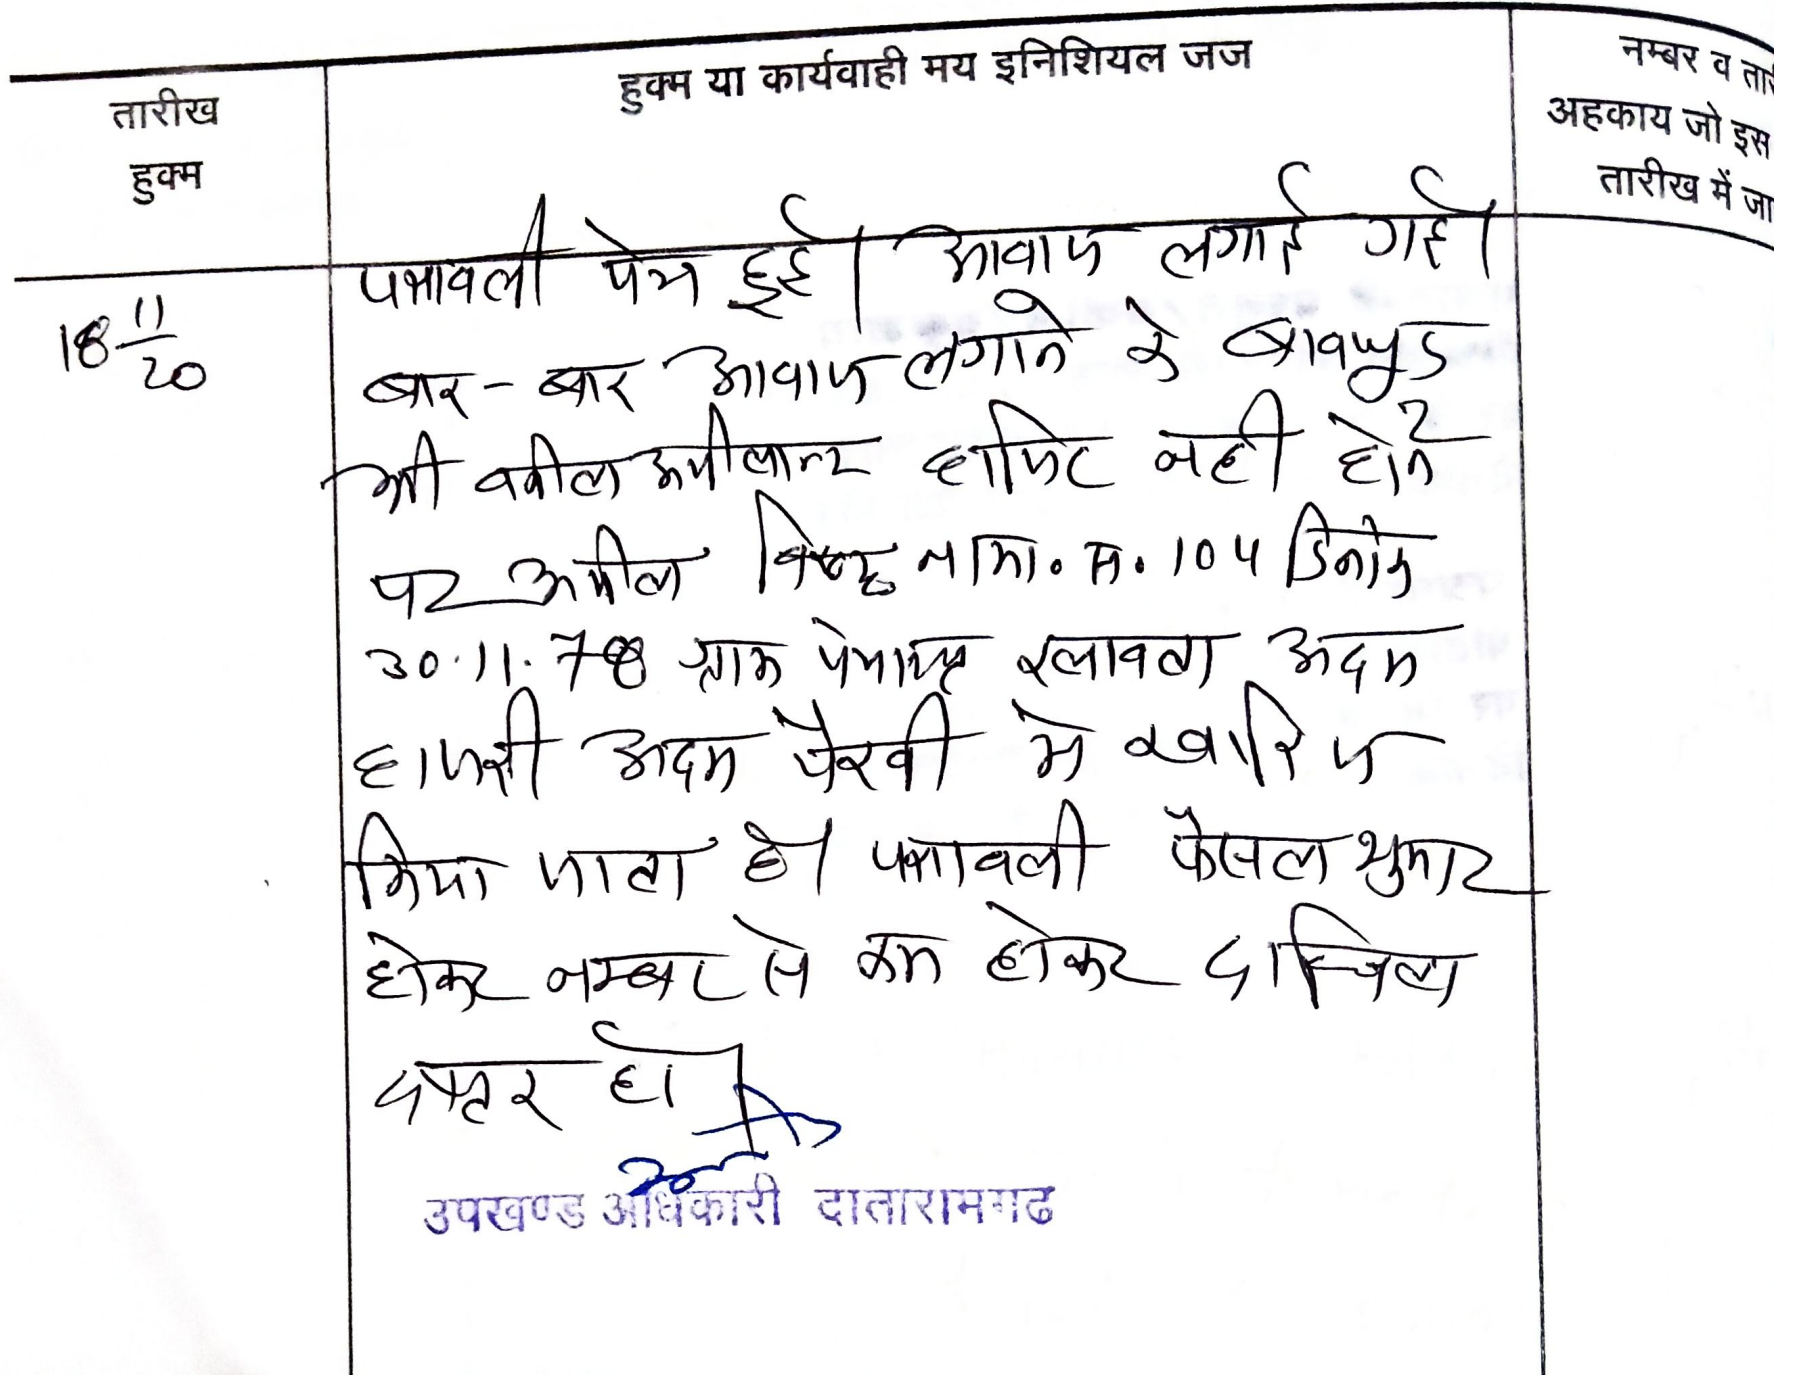 तारीख
हुक्म
हुक्म या कार्यवाही मय इनिशियल जज
नम्बर व तारी
अहकाय जो इस
तारीख में जा
18 11/20
पत्रावली पेश हुई। आवाज लगाई गई।
बार-बार आवाज लगाने के बावजूद
भी वकील अपीलान्ट हाजिर नही होने
पर अपील विरूद्ध नामा. स. 104 दिनांक
30.11.78 ग्राम रूलावता अदम
हाजरी अदम पैरवी मे खारिज
किया जाता है। पत्रावली फैसल शुमार
होकर नम्बर से कम होकर दाखिल
दफ्तर हो।
उपखण्ड अधिकारी दातारामगढ